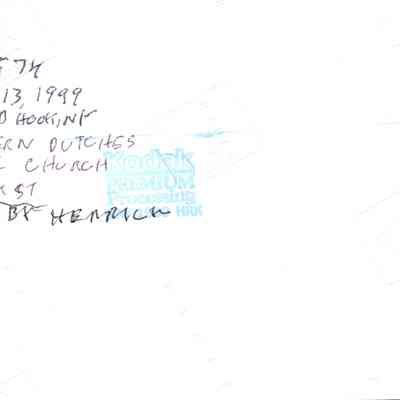 74
13, 1999
D HOOK, NY
ERN DUTCHES
CHURCH
ST
BY HENRICK
Kodak
PREMIUM
Processing
HRK